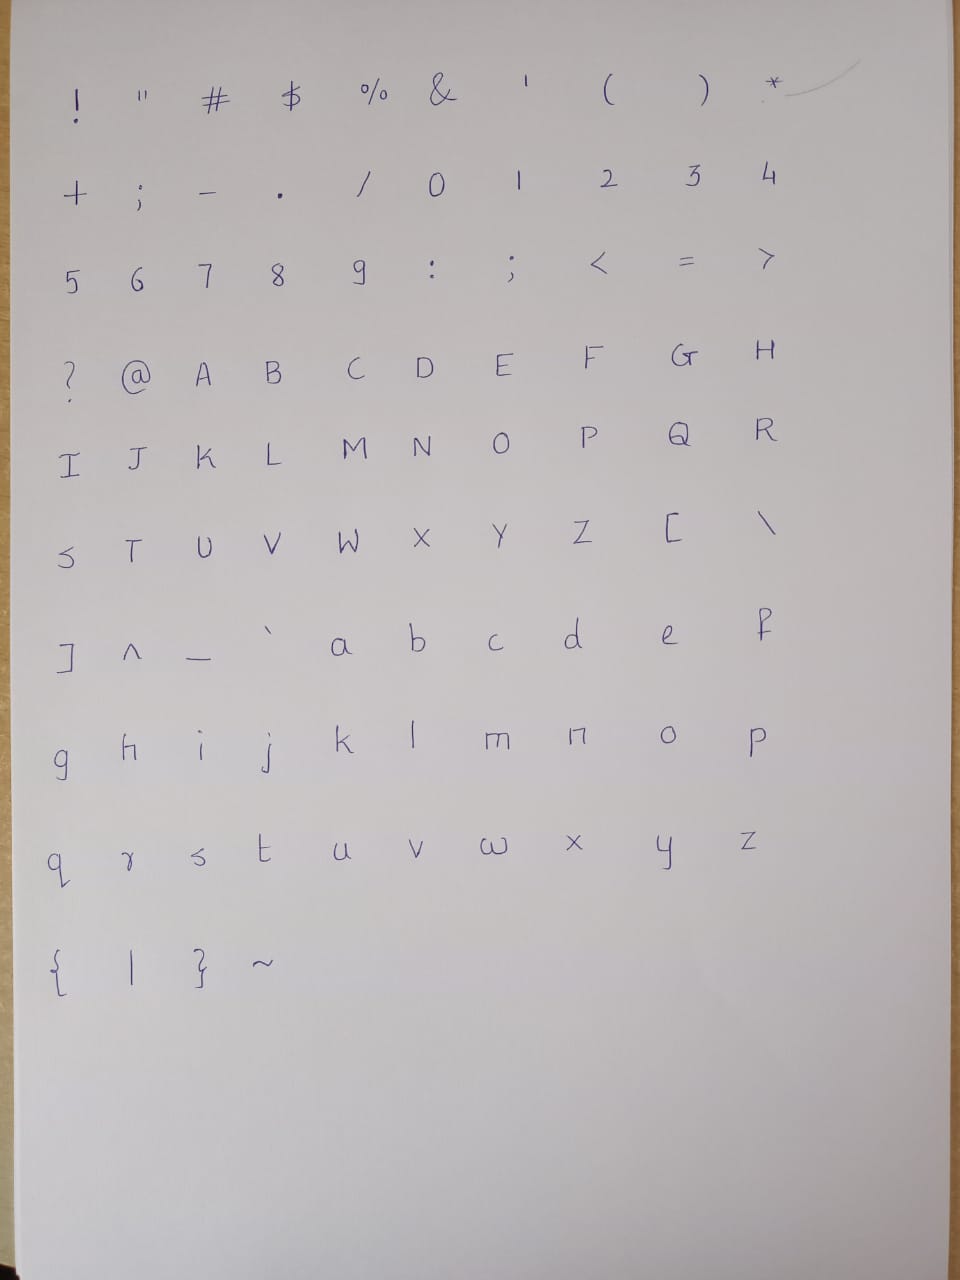 ! " # $ % & ' ( ) *
+ ; - . / 0 1 2 3 4
5 6 7 8 9 : ; < = >
? @ A B C D E F G H
I J K L M N O P Q R
S T U V W X Y Z [ \
] ^ _ ` a b c d e f
g h i j k l m n o p
q r s t u v w x y z
{ | } ~